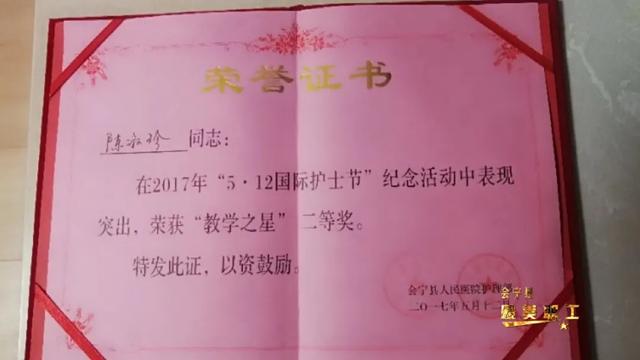 荣誉证书
陈淑珍 同志：
在2017年“5·12国际护士节”纪念活动中表现
突出，荣获“教学之星” 二等奖。
特发此证，以资鼓励。
会宁县人民医院护理
二〇一七年五月十二
会宁县
最美职工